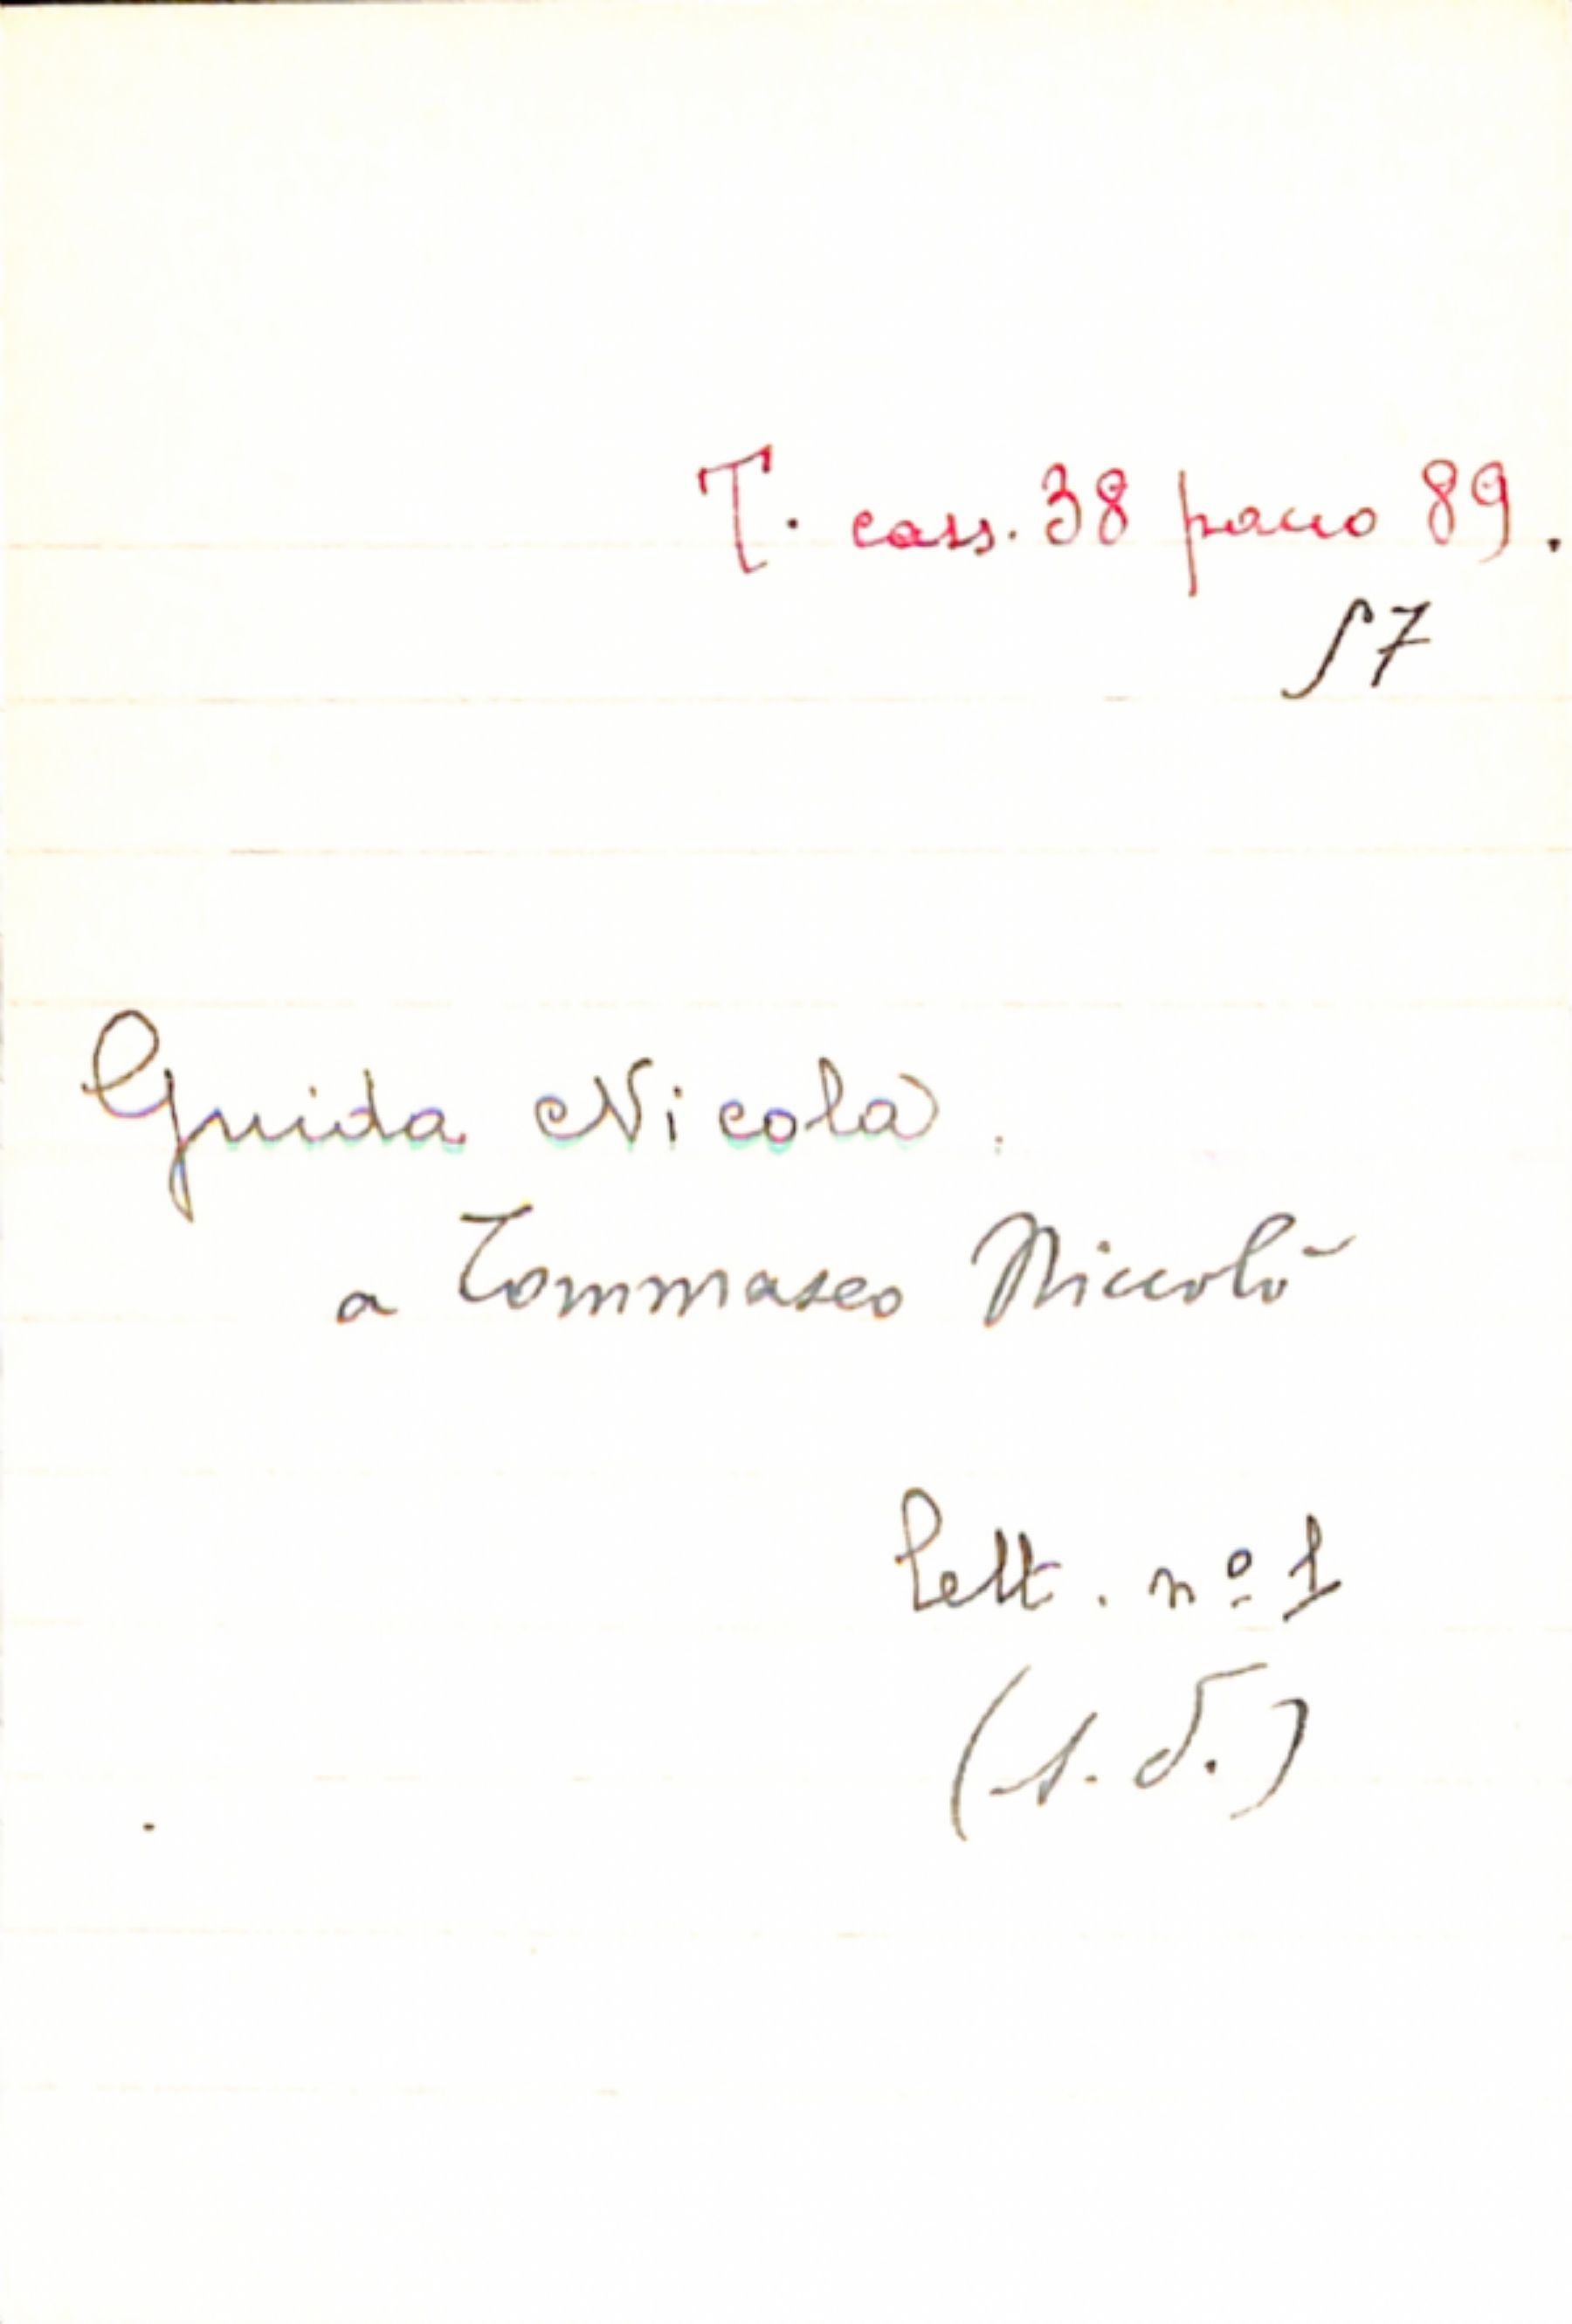 T. cass. 38 pacco 89.
57
Guida Nicola
a Tommaseo Niccolò
Lett. nº 1
(s. d.)